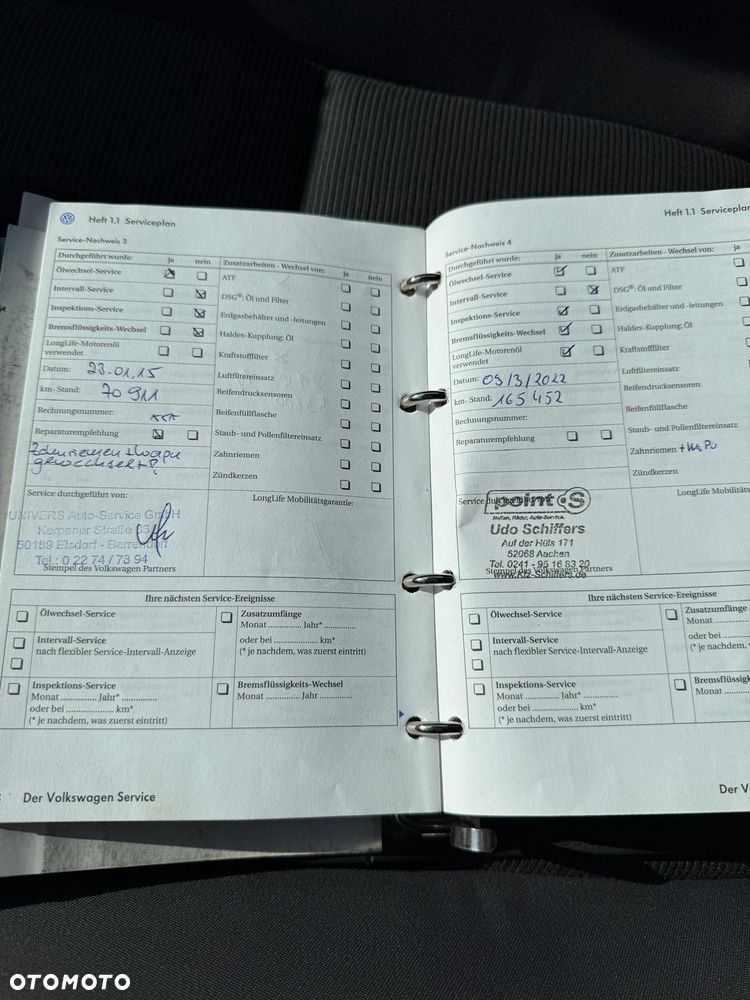 Heft 1.1 Serviceplan
Service-Nachweis 3
Durchgeführt wurde: ja nein
Zusatzarbeiten - Wechsel von: ja nein
Ölwechsel-Service
ATF
Intervall-Service
DSG®: Öl und Filter
Inspektions-Service
Erdgasbehälter und -leitungen
Bremsflüssigkeits-Wechsel
Haldex-Kupplung: Öl
LongLife-Motorenöl
verwendet
Kraftstofffilter
Datum: 23.01.15
Luftfiltereinsatz
km-Stand: 70 911
Reifendrucksensoren
Rechnungsnummer:
Reifenfüllflasche
Reparaturempfehlung
Staub- und Pollenfiltereinsatz
Zahnriemen
Zündkerzen
Service durchgeführt von:
LongLife Mobilitätsgarantie:
UNIVERS Auto-Service GmbH
Kerpener Straße
50189 Elsdorf - Berrendorf
Tel.: 0 22 74 / 73 94
Stempel des Volkswagen Partners
Ihre nächsten Service-Ereignisse
Ölwechsel-Service
Zusatzumfänge
Monat .............. Jahr* ..............
Intervall-Service
nach flexibler Service-Intervall-Anzeige
oder bei .................... km*
(* je nachdem, was zuerst eintritt)
Inspektions-Service
Monat .............. Jahr* ..............
oder bei .................... km*
(* je nachdem, was zuerst eintritt)
Bremsflüssigkeits-Wechsel
Monat .............. Jahr ..............
Der Volkswagen Service
Heft 1.1 Serviceplan
Service-Nachweis 4
Durchgeführt wurde: ja nein
Zusatzarbeiten - Wechsel von: ja
Ölwechsel-Service
ATF
Intervall-Service
DSG®: Öl und Filter
Inspektions-Service
Erdgasbehälter und -leitungen
Bremsflüssigkeits-Wechsel
Haldex-Kupplung: Öl
LongLife-Motorenöl
verwendet
Kraftstofffilter
Datum: 09/3/2022
Luftfiltereinsatz
km- Stand: 165 452
Reifendrucksensoren
Rechnungsnummer:
Reifenfüllflasche
Reparaturempfehlung
Staub- und Pollenfiltereinsatz
Zahnriemen + Wa Pu
Zündkerzen
Service durchgeführt von:
LongLife Mobilitäts
point S
Reifen, Räder, Auto-Service.
Udo Schiffers
Auf der Hüls 171
52068 Aachen
Tel. 0241 - 95 16 83 20
www.Kfz-Schiffers.de
Stempel des Volkswagen Partners
Ihre nächsten Service-Ereignisse
Ölwechsel-Service
Zusatzumfänge
Monat ..............
Intervall-Service
nach flexibler Service-Intervall-Anzeige
oder bei ..............
(* je nachdem, w
Inspektions-Service
Monat .............. Jahr* ..............
oder bei .................... km*
(* je nachdem, was zuerst eintritt)
Bremsflüssig
Monat ..............
Der V
OTOMOTO